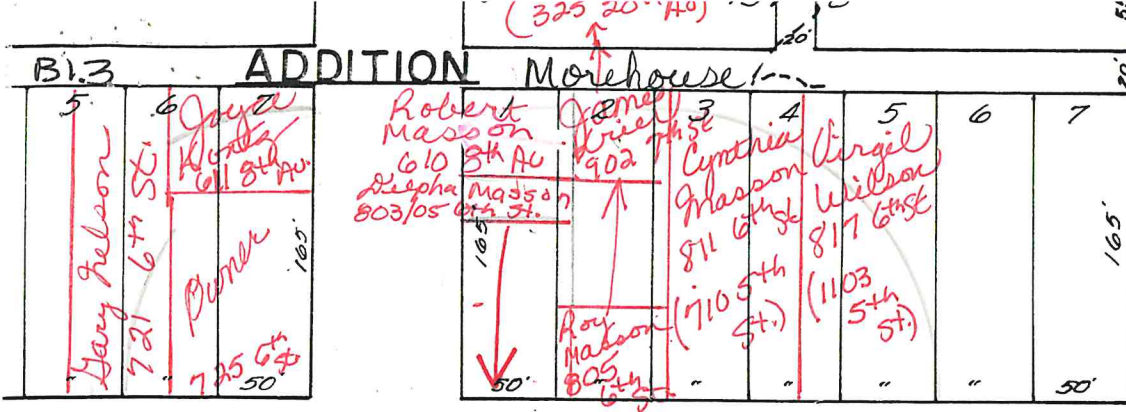 (325 20th Av)
20'
Bl.3 ADDITION Morehouse
20'
5 6 7
Joyce
611 8th Av.
Gary Nelson
721 6th St.
Owner
725 6th St
165'
" 50'
1 2 3 4 5 6 7
Robert
Masson
610 8th Av
Delpha Masson
803/05 6th St.
165'
50'
James
902 7th St
Roy
Masson
805
6th St
Cynthia
Masson
811 6th St
(710 5th
St.)
Virgil
Wilson
817 6th St
(1103
5th
St.)
165'
" " " " " 50'